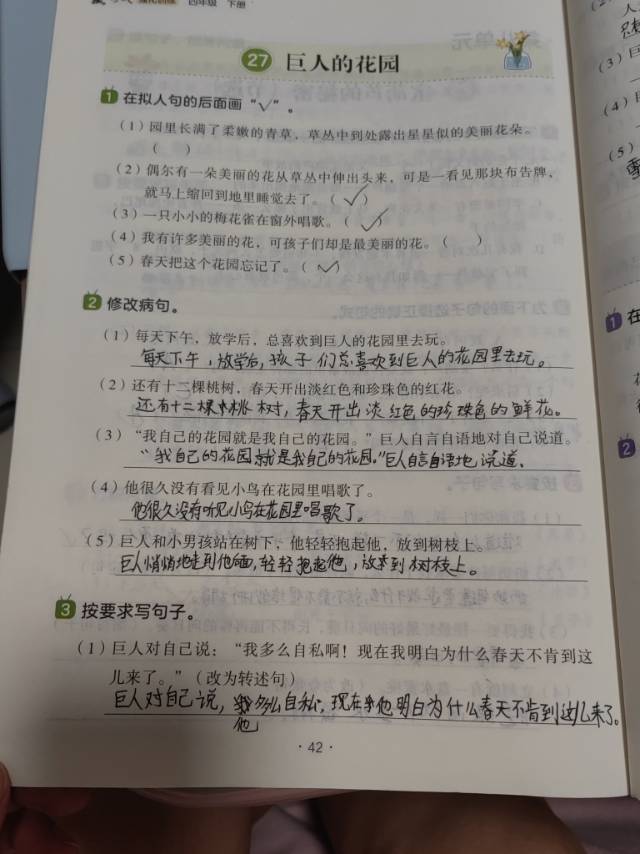 强化训练 四年级 下册
27 巨人的花园
1 在拟人句的后面画“√”。
（1）园里长满了柔嫩的青草，草丛中到处露出星星似的美丽花朵。
（ ）
（2）偶尔有一朵美丽的花从草丛中伸出头来，可是一看见那块布告牌，
就马上缩回到地里睡觉去了。（√）
（3）一只小小的梅花雀在窗外唱歌。（√）
（4）我有许多美丽的花，可孩子们却是最美丽的花。（ ）
（5）春天把这个花园忘记了。（√）
2 修改病句。
（1）每天下午，放学后，总喜欢到巨人的花园里去玩。
每天下午，放学后，孩子们总喜欢到巨人的花园里去玩。
（2）还有十二棵桃树，春天开出淡红色和珍珠色的红花。
还有十二棵桃树，春天开出淡红色的珍珠色的鲜花。
（3）“我自己的花园就是我自己的花园。”巨人自言自语地对自己说道。
“我自己的花园就是我自己的花园。”巨人自言自语地说道.
（4）他很久没有看见小鸟在花园里唱歌了。
他很久没有听见小鸟在花园里唱歌了。
（5）巨人和小男孩站在树下，他轻轻抱起他，放到树枝上。
巨人悄悄地走到他后面，轻轻抱起他，放到树枝上。
3 按要求写句子。
（1）巨人对自己说：“我多么自私啊！现在我明白为什么春天不肯到这
儿来了。”（改为转述句）
巨人对自己说，多么自私，现在他明白为什么春天不肯到这儿来了。
他
·42·
（3）
（4）
（5）
1 在
2